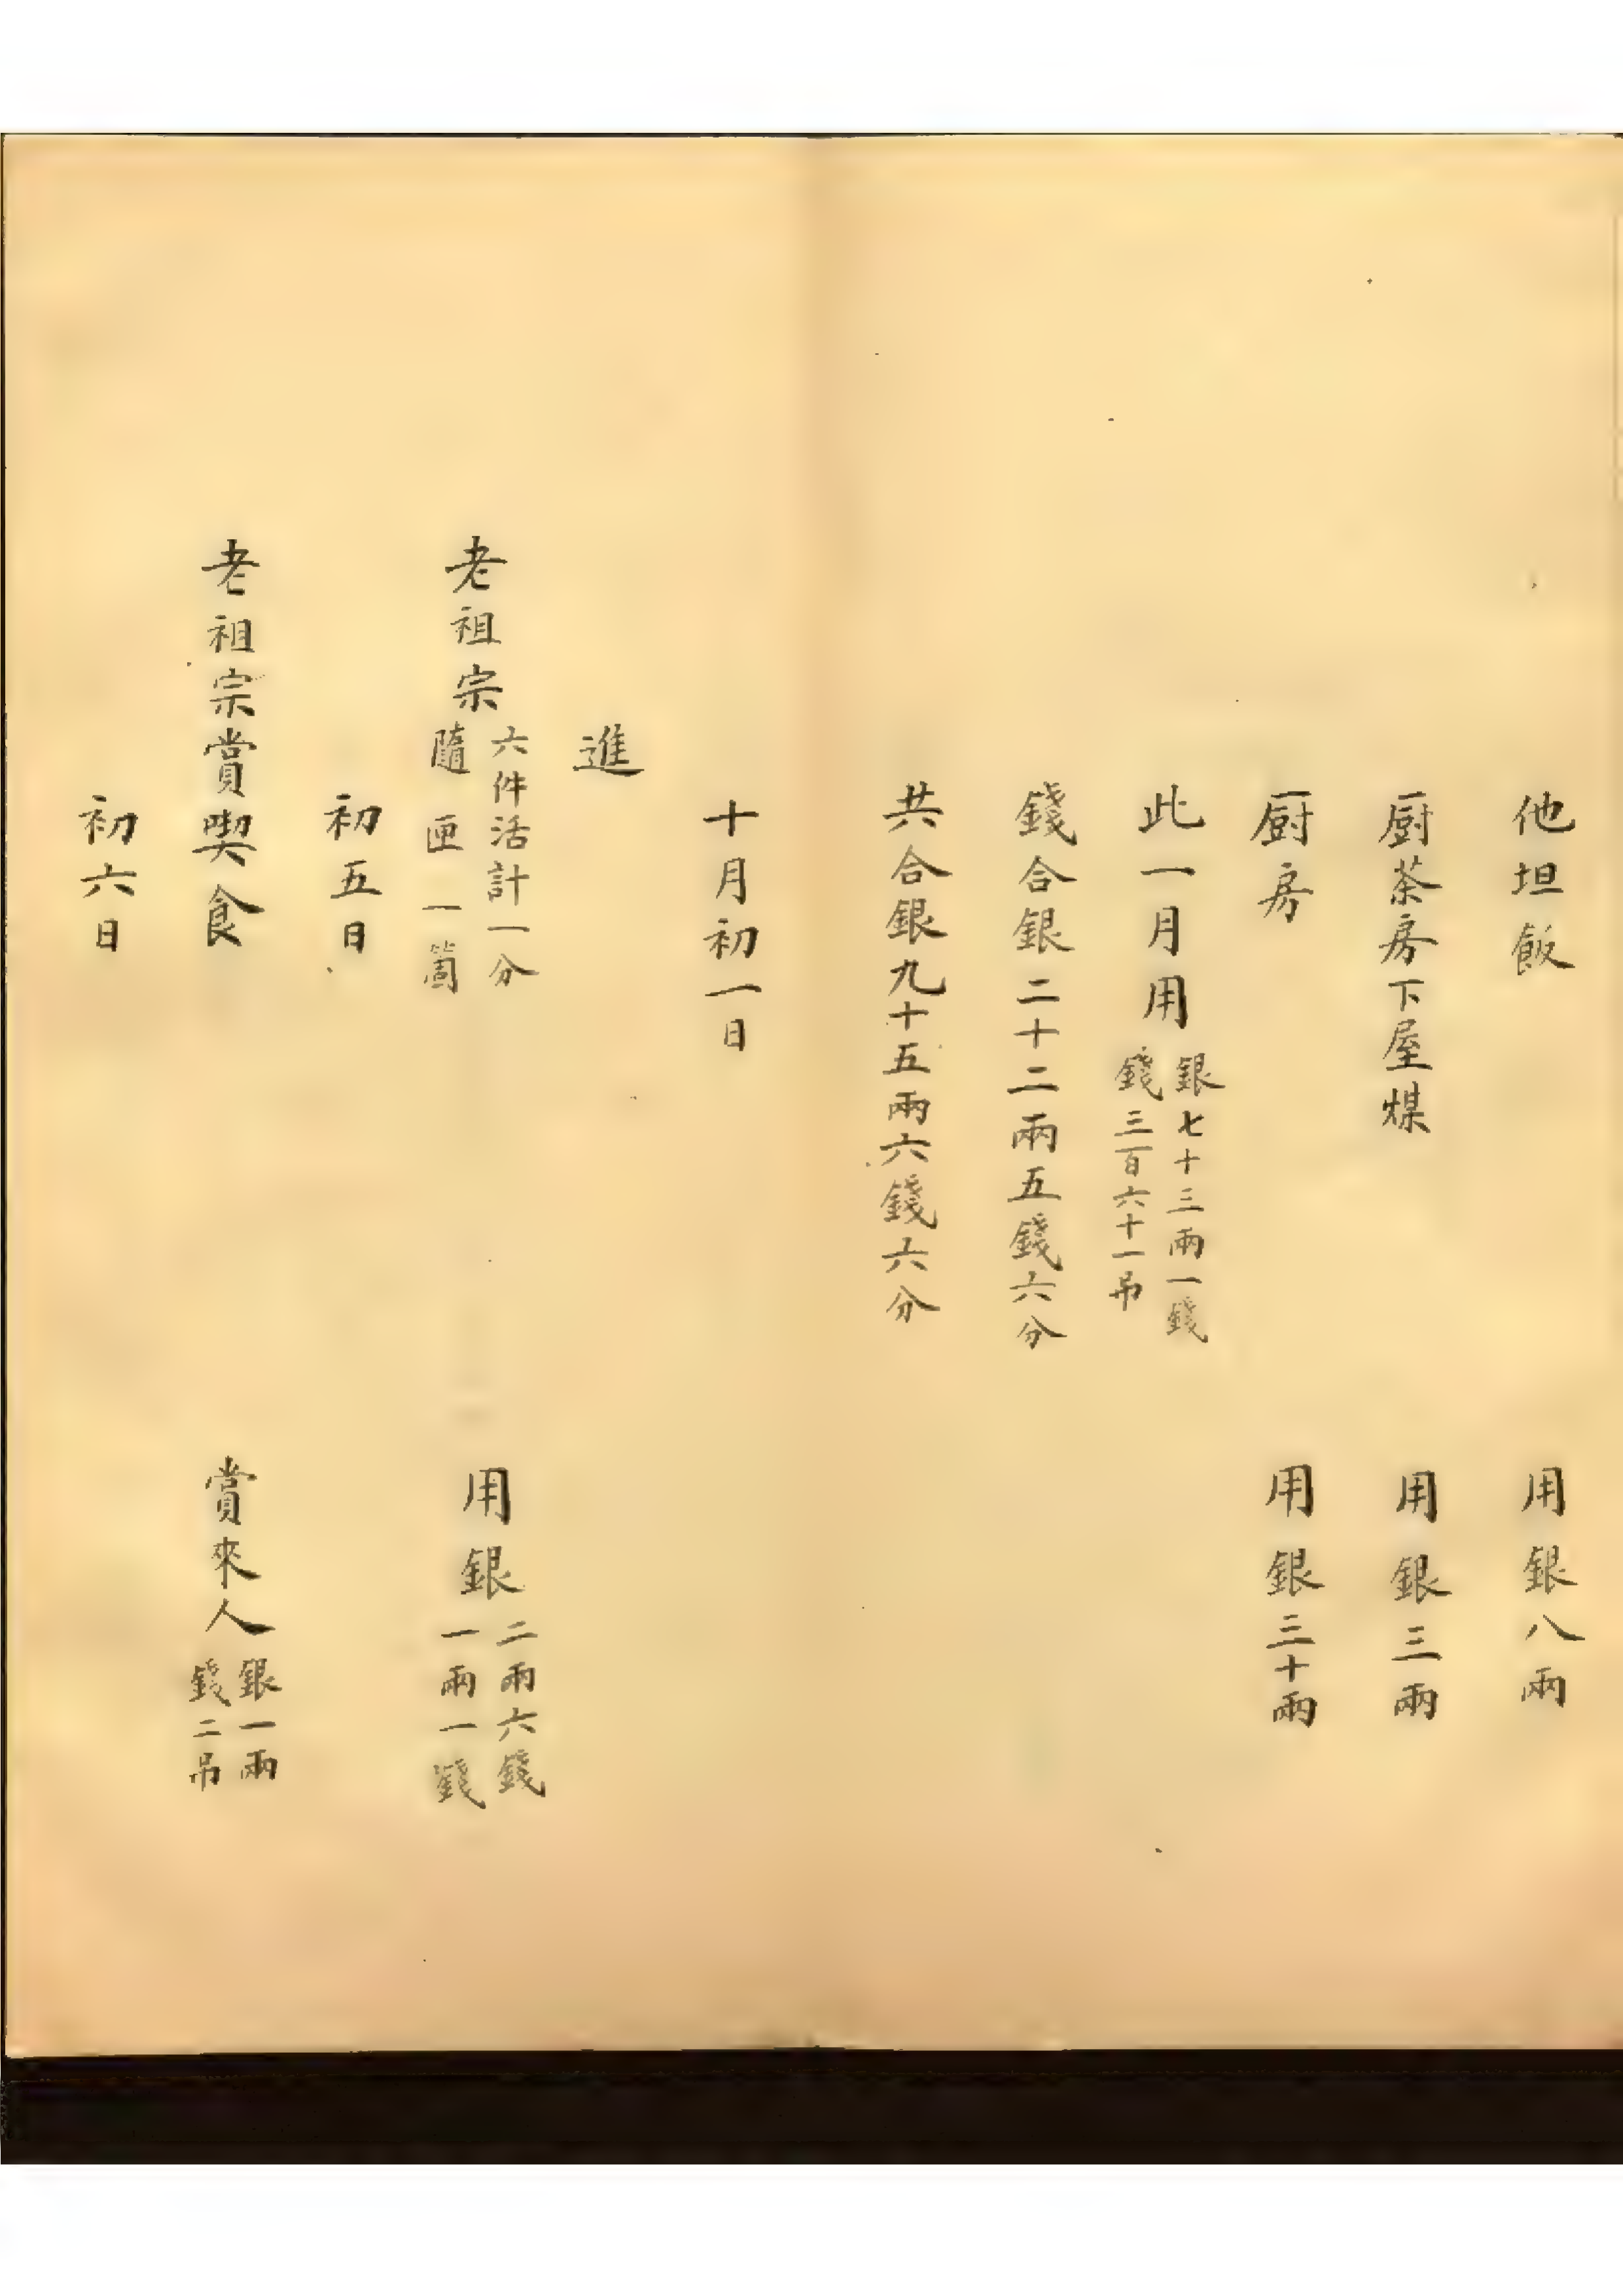 他坦飯 用銀八兩
厨茶房下屋煤 用銀三兩
厨房 用銀三十兩
此一月用
銀七十三兩一錢
錢三百六十一吊
錢合銀二十二兩五錢六分
共合銀九十五兩六錢六分
十月初一日
進
老祖宗
六件活計一分
隨匣一箇
用銀
二兩六錢
一兩一錢
初五日
老祖宗賞喫食 賞來人
銀一兩
錢二吊
初六日